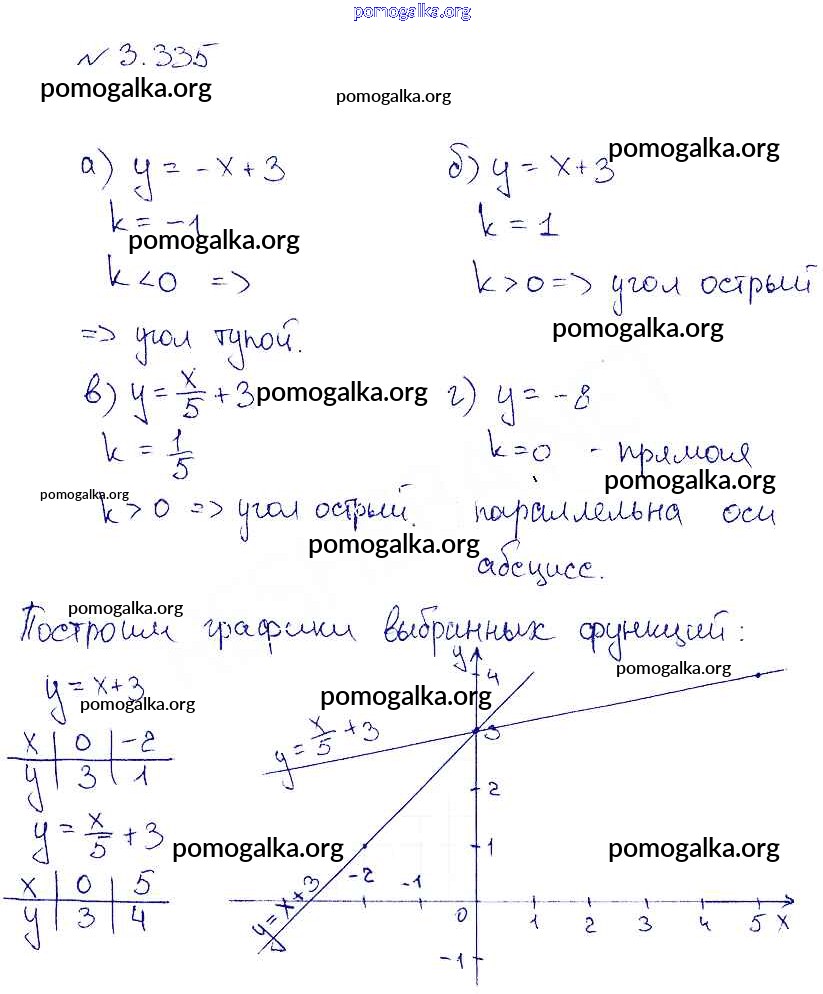 pomogalka.org
№ 3.335
pomogalka.org
pomogalka.org
а) y = -x + 3
k = -1
pomogalka.org
k < 0 =>
=> угол тупой.
б) y = x + 3
pomogalka.org
k = 1
k > 0 => угол острый
pomogalka.org
в) y = x/5 + 3
pomogalka.org
k = 1/5
pomogalka.org
k > 0 => угол острый.
pomogalka.org
г) y = -8
k = 0 - прямая
pomogalka.org
параллельна оси
абсцисс.
pomogalka.org
Построим графики выбранных функций:
y = x + 3
pomogalka.org
x | 0 | -2
y | 3 | 1
y = x/5 + 3
pomogalka.org
x | 0 | 5
y | 3 | 4
y
4
pomogalka.org
pomogalka.org
y = x/5 + 3
3
2
1
pomogalka.org
-2 -1
y = x + 3
0 1 2 3 4 5 x
-1